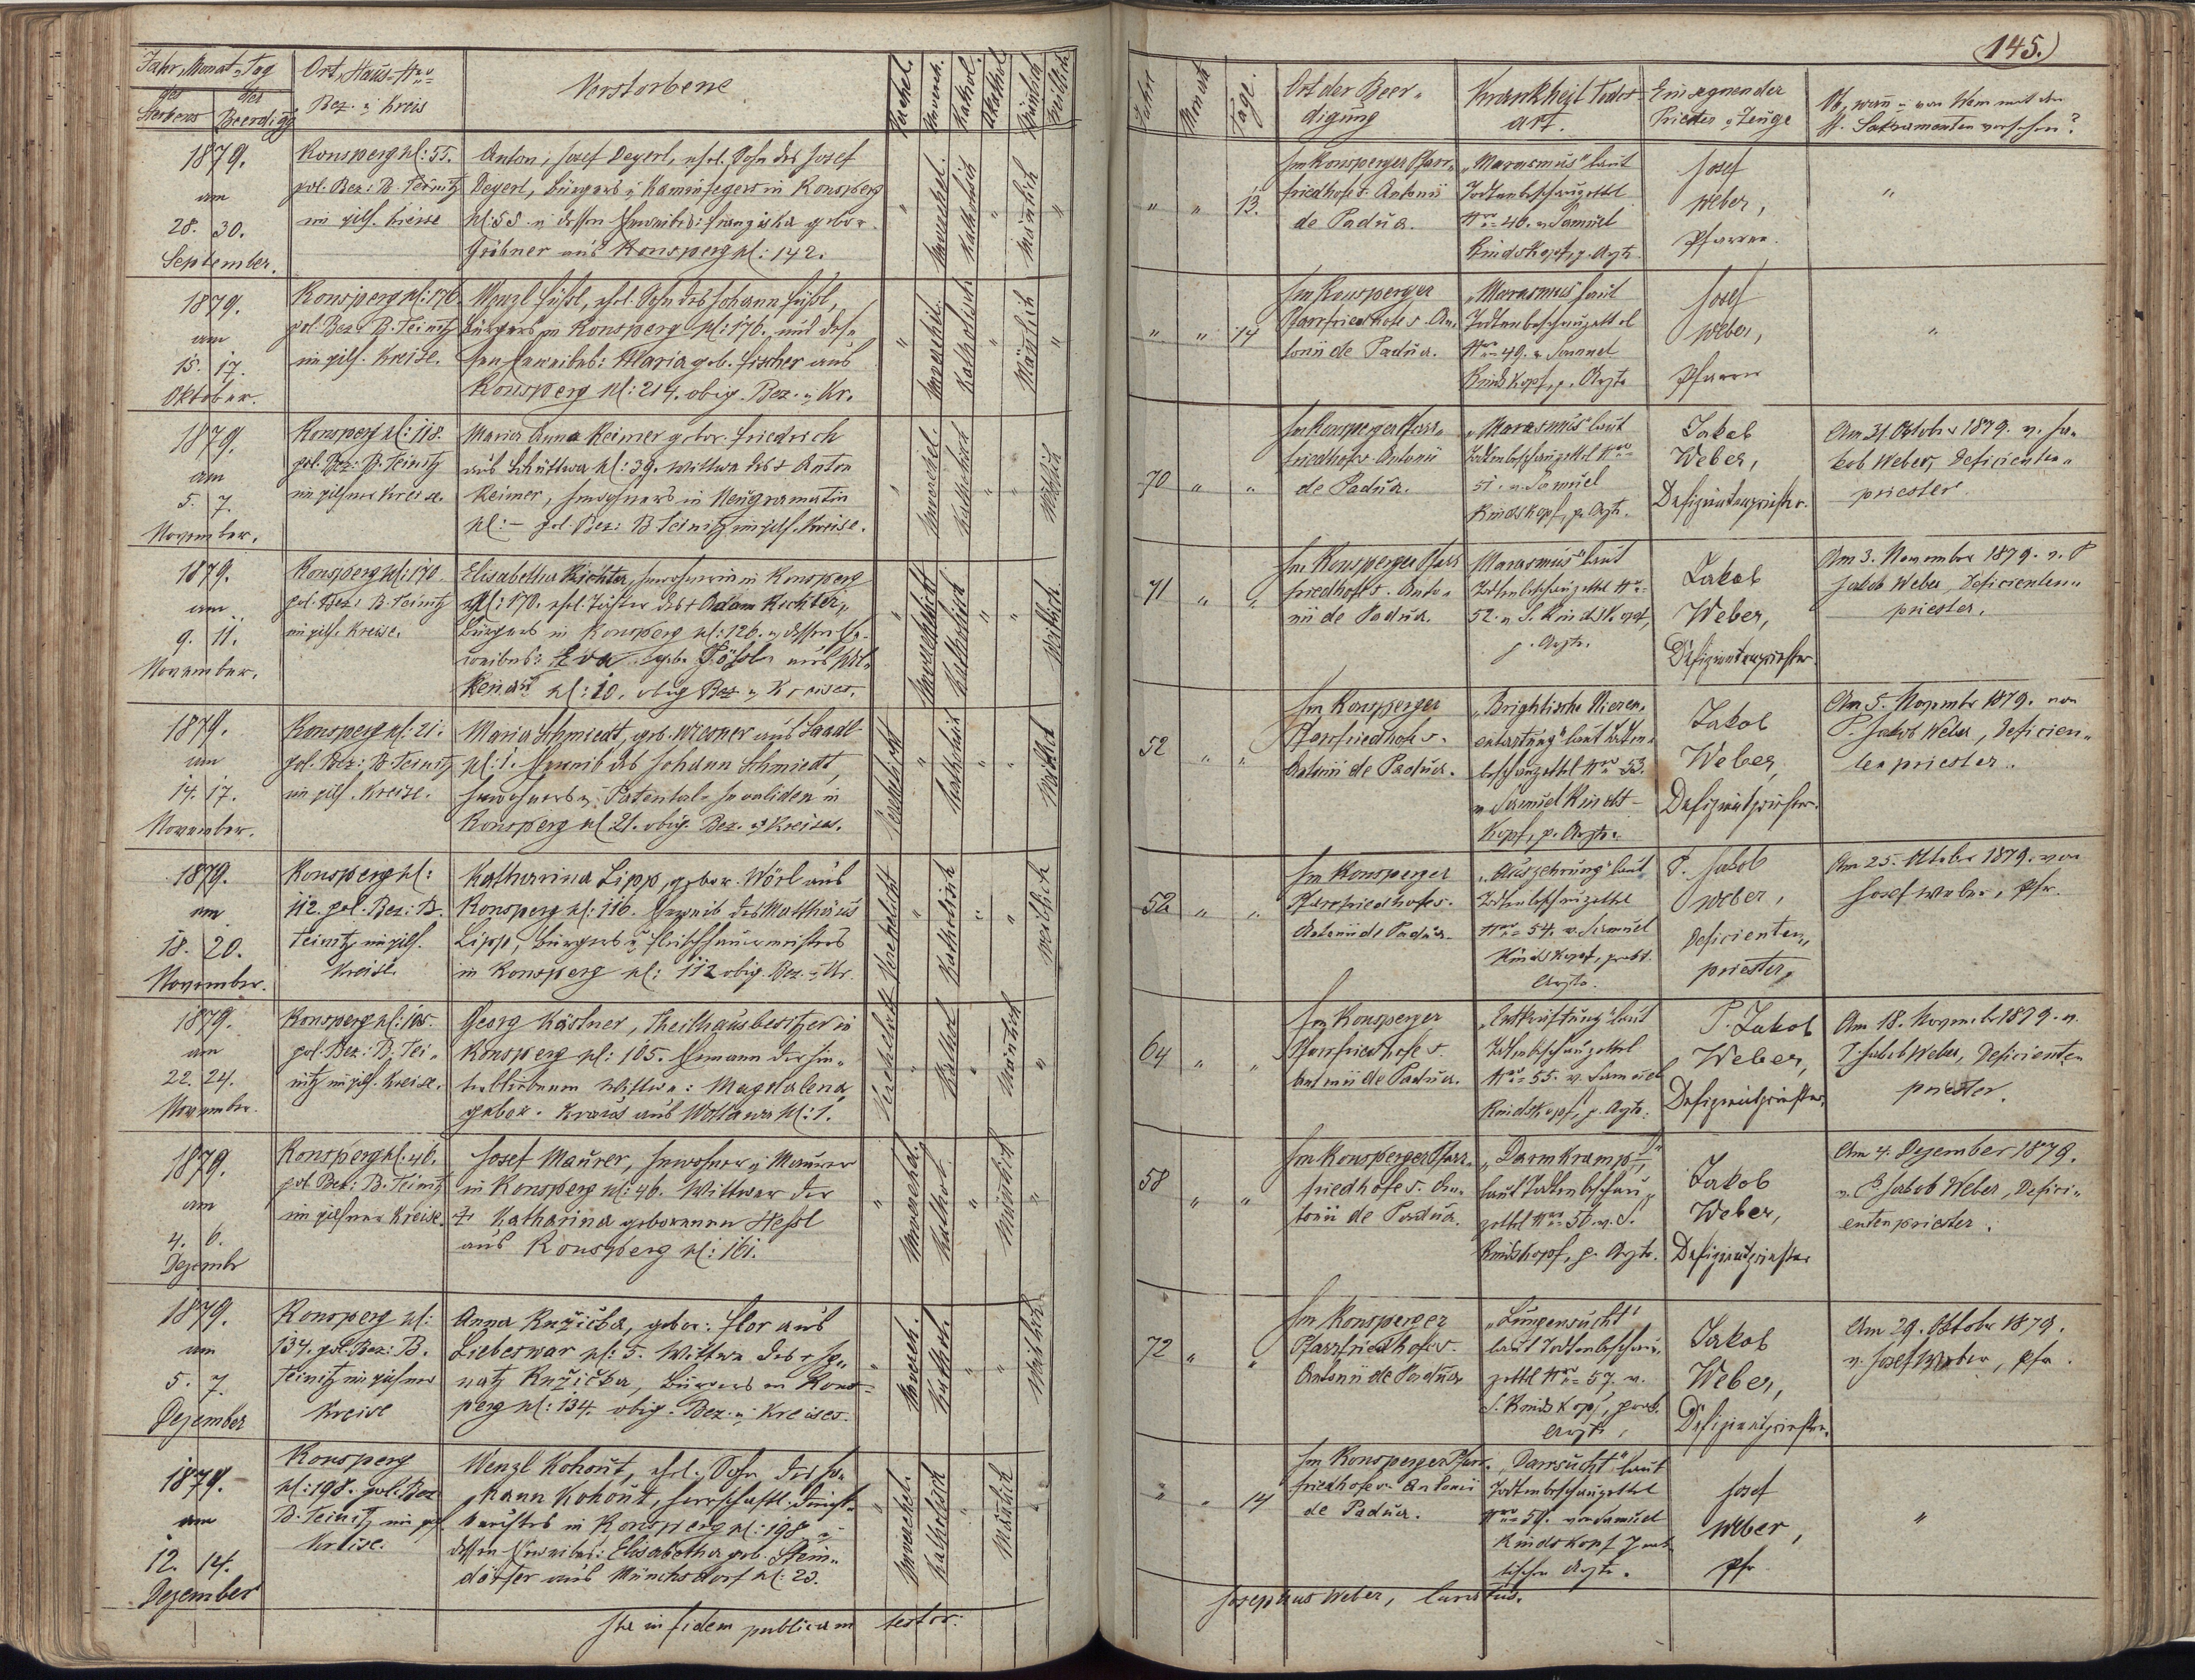 145.
Jahr, Monat u Tag
des Sterbens
des Beerdigg
Ort, Haus-Nro
Bez. u Kreis
Verstorbene
Verehel.
Unvereh.
Kathol.
Akathol.
Mänlich
Weiblich
Jahr
Monat
Tage.
Ort der Beer-
digung
Krankheit Todes-
art.
Einsegnender
Priester u Zeuge
Ob, wañ u von Wem mit den
h. Sakramenten versehen?
1879.
am
28. 30.
September.
Konsperg N: 55.
pol. Bez: B. Teinitz
im pils. Kreise
Anton, Josef Deyerl, ehel. Sohn des Josef
Deyerl, Bürgers u Kaminfegers in Konsperg
N: 55. u dessen Eheweibes: Franziska gebor.
Gröbner aus Konsperg N: 142.
"
Unverehel.
Katholisch
"
Mänlich
"
" " 13.
Im Konsperger Pfarr-
friedhofe s. Antonii
de Padua.
"Marasmus" laut
Todtenbeschauzettel
Nro 46. v. Samuel
Kindskopf, p. Arzte.
Josef
Weber,
Pfarrer.
"
1879.
am
15. 17.
Oktober.
Konsperg N: 176.
pol. Bez. B. Teinitz
im pils. Kreise.
Wenzl Füßl, ehel. Sohn des Johann Füßl,
Bürgers in Konsperg N: 176. und des-
sen Eheweibes: Maria geb. Fischer aus
Konsperg N: 214. obig. Bez. u Kr.
"
Katholisch
"
Mänlich
"
" " 14
Im Konsperger
Pfarrfriedhofe s. An-
tonii de Padua.
"Marasmus" laut
Todtenbeschauzettel
Nro 49. v. Samuel
Kindskopf, p. Arzte
Josef
Weber,
Pfarrer
"
1879.
am
5. 7.
November.
Konsperg N: 118.
pol. Bez: B. Teinitz
im pilsner Kreise.
Maria Anna Reimer gebor. Friedrich
aus Schüttwa N: 39. Wittwe des + Anton
Reimer, Inwohners in Neugramatin
N: – pol. Bez: B. Teinitz im pils. Kreise.
"
Unverehel.
Katholisch
" "
Weiblich
70 " "
Im Konsperger Pfarr-
friedhofe s. Antonii
de Padua.
"Marasmus" laut
Todtenbeschauzettel Nro
51. v. Samuel
Kindskopf, p. Arzte.
Jakob
Weber,
Defizientenpriester.
Am 31. Oktober 1879. v. Ja-
kob Weber, Deficienten-
priester.
1879.
am
9. 11.
November.
Konsperg N: 170.
pol. Bez: B. Teinitz
im pils. Kreise.
Elisabetha Richter, Inwohnerin in Konsperg
N: 170. ehel. Tochter des + Adam Richter,
Bürgers in Konsperg N: 126. u dessen Ehe-
weibes: Eva geb. Pößl aus
N: 10. obig Bez. u Kreises.
"
Unverehelicht
Katholisch
" "
Weiblich.
71 " "
Im Konsperger Pfarr
friedhofe s. Anto-
nii de Padua.
Marasmus" laut
Todtenbeschauzettel Nro
52. v. S. Kindskopf,
p. Arzte.
Jakob
Weber,
Defizientenpriester.
Am 3. November 1879. v. P
Jakob Weber, Deficienten-
priester.
1879.
am
14. 17.
November.
Konsperg N: 21:
pol. Bez: B. Teinitz
im pils. Kreise.
Maria Schmiedt, geb. Werner aus Saadl
N: 1. Eheweib des Johann Schmiedt,
Inwohners u. Patental-Invaliden in
Konsperg N: 21. obig. Bez. u Kreises.
Verehelicht
"
Katholisch
" "
Weiblich
52 " "
Im Konsperger
Pfarrfriedhofe s.
Antonii de Padua.
"Brightische Nieren-
entartung" laut Todten-
beschauzettel Nro 53.
v. Samuel Kindts-
kopf, p. Arzte.
Jakob
Weber,
Defizientpriester.
Am 5. Novembr 1879. von
P. Jakob Weber, Deficien-
tenpriester.
1879.
am
18. 20.
November.
Konsperg N:
112. pol. Bez: B.
Teinitz im pils.
Kreise.
Katharina Lipp, gebor. Wörl aus
Konsperg N: 116. Eheweib des Matthäus
Lipp, Bürgers u Fleischhauermeisters
in Konsperg N: 112 obig. Bez. u Kr.
Verehelicht
"
Katholisch
" "
Weiblich
52 " "
Im Konsperger
Pfarrfriedhofe s.
Antonii de Padua.
"Auszehrung" laut
Todtenbeschauzettel
Nro 54. v. Samuel
Kindskopf, prakt.
Arzte.
P. Jakob
Weber,
Deficienten-
priester.
Am 25. Oktober 1879. von
Josef Weber, Pfr.
1879.
am
22. 24.
November.
Konsperg N: 105.
pol. Bez: B. Tei-
nitz im pils. Kreise.
Georg Kästner, Theilhausbesitzer in
Konsperg N: 105. Ehemann der hin-
terbliebenen Wittwe: Magdalena,
gebor. Kraus aus Wottawa N: 1.
Verehelicht
"
Kathol
"
Mänlich
"
64 " "
Im Konsperger
Pfarrfriedhofe s.
Antonii de Padua.
"Entkräftung" laut
Todtenbeschauzettel
Nro 55. v. Samuel
Kindskopf, p. Arzte.
P. Jakob
Weber,
Defizientpriester.
Am 18. November 1879. v.
P. Jakob Weber, Deficienten
priester.
1879.
am
4. 6.
Dezembr
Konsperg N: 46.
pol. Bez: B. Teinitz
im pilsner Kreise.
Josef Maurer, Inwohner u Maurer
in Konsperg N: 46. Wittwer der
+ Katharina geborenen Heßl
aus Konsperg N: 161.
"
Unverehel.
Kathol.
"
Mänlich
"
58 " "
Im Konsperger Pfarr-
friedhofe s. An-
tonii de Padua.
"Darmkrampf",
laut Todtenbeschau-
zettel Nro 56. v. S.
Kindskopf, p. Arzte.
Jakob
Weber,
Defizientpriester
Am 4. Dezember 1879.
v. P. Jakob Weber, Defici-
entenpriester.
1879.
am
5. 7.
Dezember
Konsperg N:
134. pol. Bez: B.
Teinitz im pilsner
Kreise
AnnaRužička, gebor: Flor aus
Liebeswar N: 5. Wittwe des + Ig-
natz Ružička, Bürgers in Kons-
perg N: 134. obig. Bez. u Kreises.
"
Unvereh.
Kathol.
" "
Weiblich
72 " "
Im Konsperger
Pfarrfriedhofe s.
Antonii de Padua
"Lungensucht"
laut Todtenbeschau-
zettel Nro 57. v.
S. Kindskopf, prak.
Arzte,
Jakob
Weber,
Defizientpriester.
Am 29. Oktober 1879.
v. Josef Weber, Pfr.
1879.
am
12. 14.
Dezember
Konsperg
N: 198. pol. Bez
B. Teinitz im pil
Kreise.
Wenzl Kohout, ehel. Sohn des Jo-
hann Kohout, herrschaftl.
in Konsperg N: 198 u
dessen Eheweibes: Elisabetha geb. Stein-
dörfer aus Münchsdorf N: 23.
"
Unverehel.
Katholisch
"
Mänlich
"
" " 14
Im Konsperger Pfarr-
friedhofe s. Antonii
de Padua.
"Darrsucht" laut
Todtenbeschauzettel
Nro 58. von Samuel
Kindskopf prak-
tischen Arzte.
Josef
Weber,
Pfr
"
Ita in fidem publicam testor:
Josephus Weber, Curatus.